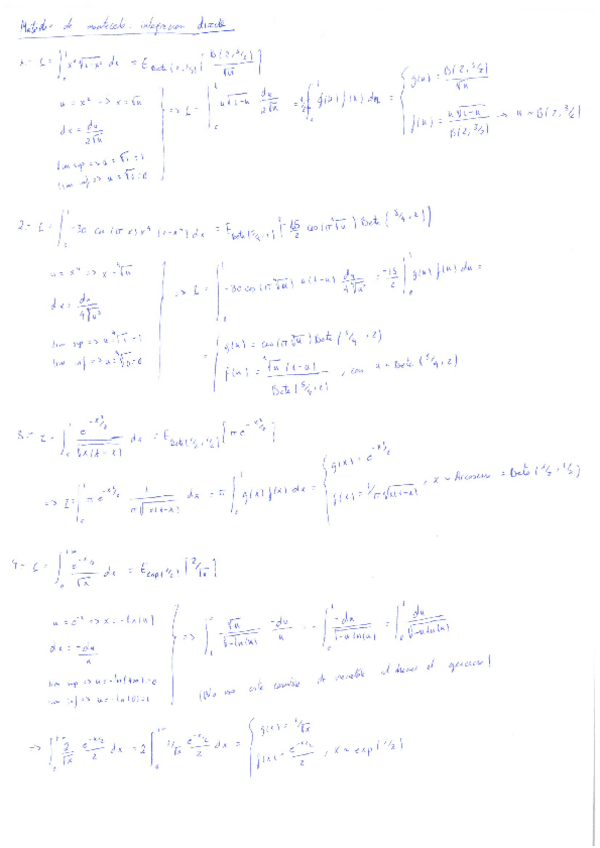 Metodos de montecarlo: integracion directa
1.- I = ∫₀¹ x⁴√(1-x²) dx = E_Beta(2,3/2) [ B(2,3/2) / √u ]
u = x² => x = √u
dx = du / 2√u
lim sup => u = √1 = 1
lim inf => u = √0 = 0
=> I = ∫₀¹ u√(1-u) du / 2√u = ½ ∫₀¹ g(u) f(u) du =
g(u) = B(2,3/2) / √u
f(u) = u√(1-u) / B(2,3/2) → u ~ B(2,3/2)
2.- I = ∫₀¹ -30 cos(πx) x⁴ (1-x⁴) dx = E_Beta(5/4,2) [ -15/2 cos(π⁴√u) Beta(5/4,2) ]
u = x⁴ => x = ⁴√u
dx = du / 4⁴√u³
lim sup => u = ⁴√1 = 1
lim inf => u = ⁴√0 = 0
=> I = ∫₀¹ -30 cos(π⁴√u) u(1-u) du / 4⁴√u³ = -15/2 ∫₀¹ g(u) f(u) du =
g(u) = cos(π⁴√u) Beta(5/4,2)
f(u) = ⁴√u (1-u) / Beta(5/4,2) , con u ~ Beta(5/4,2)
3.- I = ∫₀¹ e^(-x²/2) / √(x(1-x)) dx = E_Beta(1/2,1/2) [ π e^(-x²/2) ]
=> I = ∫₀¹ π e^(-x²/2) 1 / π√(x(1-x)) dx = π ∫₀¹ g(x) f(x) dx =
g(x) = e^(-x²/2)
f(x) = 1/π√(x(1-x)) , x ~ Arcoseno = Beta(1/2,1/2)
4.- I = ∫₀^+∞ e^(-x/2) / √x dx = E_exp(1/2) [ 2/√x ]
u = e^-x => x = -ln(u)
dx = -du / u
lim sup => u = -ln(+∞) = 0
lim inf => u = -ln(0) = 1
=> ∫₁⁰ √u / √(-ln(u)) -du / u = - ∫₁⁰ du / √(-u ln(u)) = ∫₀¹ du / √(-u ln(u))
(No este cambio de variable al el)
=> ∫₀^+∞ 2/√x e^(-x/2) / 2 dx = 2 ∫₀^+∞ 1/√x e^(-x/2) / 2 dx =
g(x) = 1/√x
f(x) = e^(-x/2) / 2 , x ~ exp(1/2)